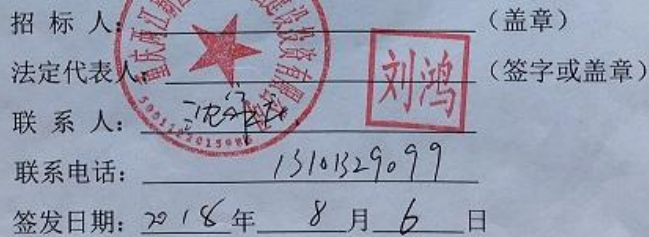 招 标 人：（盖章）
法定代表人：刘鸿（签字或盖章）
联 系 人：
联系电话：13101329099
签发日期：2018年 8月 6日